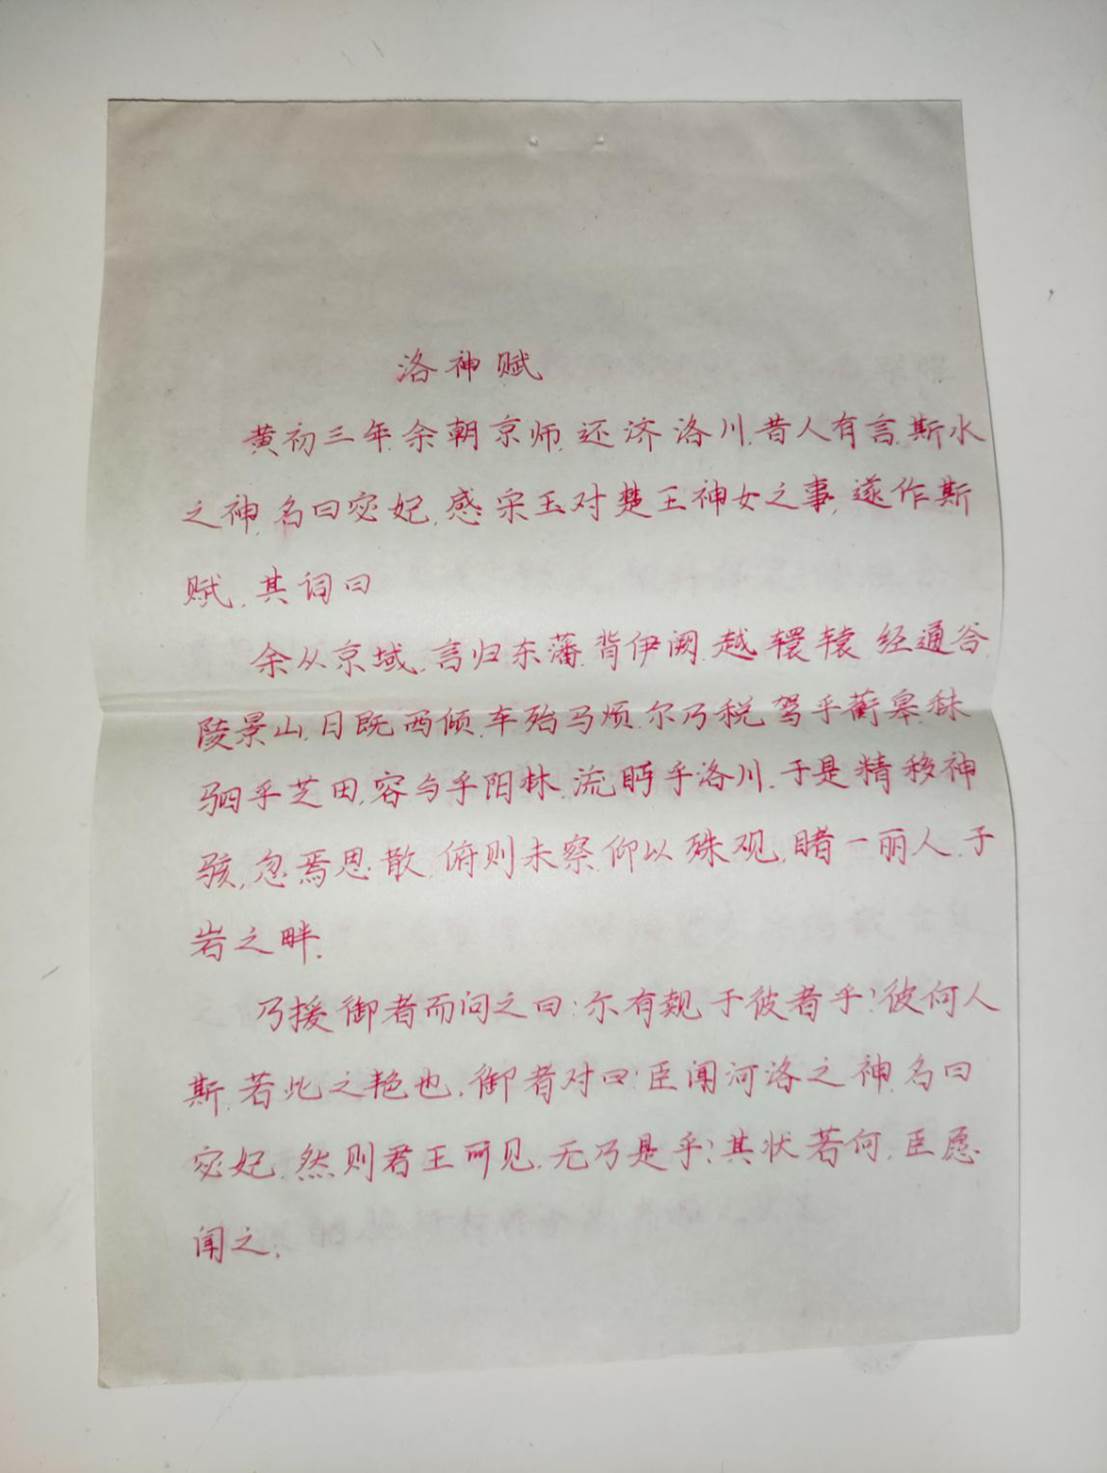 洛神赋
黄初三年.余朝京师.还济洛川.昔人有言.斯水
之神.名曰宓妃.感宋玉对楚王神女之事.遂作斯
赋.其词曰
余从京域.言归东藩.背伊阙.越轘辕 经通谷.
陵景山.日既西倾.车殆马烦.尔乃税驾乎蘅皋秣
驷乎芝田.容与乎阳林.流眄乎洛川.于是精移神
骇.忽焉思散.俯则未察.仰以殊观.睹一丽人.于
岩之畔.
乃援御者而问之曰:尔有觌于彼者乎?彼何人
斯.若此之艳也.御者对曰:臣闻河洛之神.名曰
宓妃.然则君王所见.无乃是乎?其状若何.臣愿
闻之.